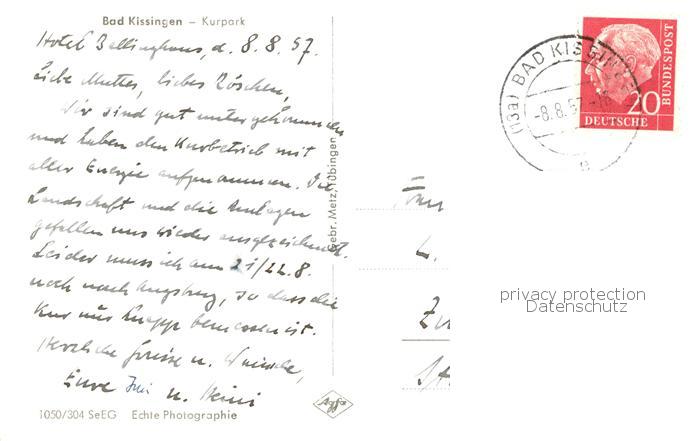 Bad Kissingen – Kurpark
Hotel Bellinghaus, d. 8. 8. 57.
Liebe Mutter, liebes Röschen,
Wir sind gut untergekommen
und haben den Kurbetrieb mit
aller Energie aufgenommen. Die
Landschaft und die Anlagen
gefallen uns wieder ausgezeichnet.
Leider muss ich am 21/22.8.
noch nach Augsburg, so dass die
Kur nur knapp bemessen ist.
Herzliche Grüsse u. Wünsche,
Eure u. Heini
1050/304 SeEG Echte Photographie
Gebr. Metz, Tübingen
Agfa
(13a) BAD KISSINGEN
-8.8.57.-18
a
20
DEUTSCHE
BUNDESPOST
L.
privacy protection
Datenschutz